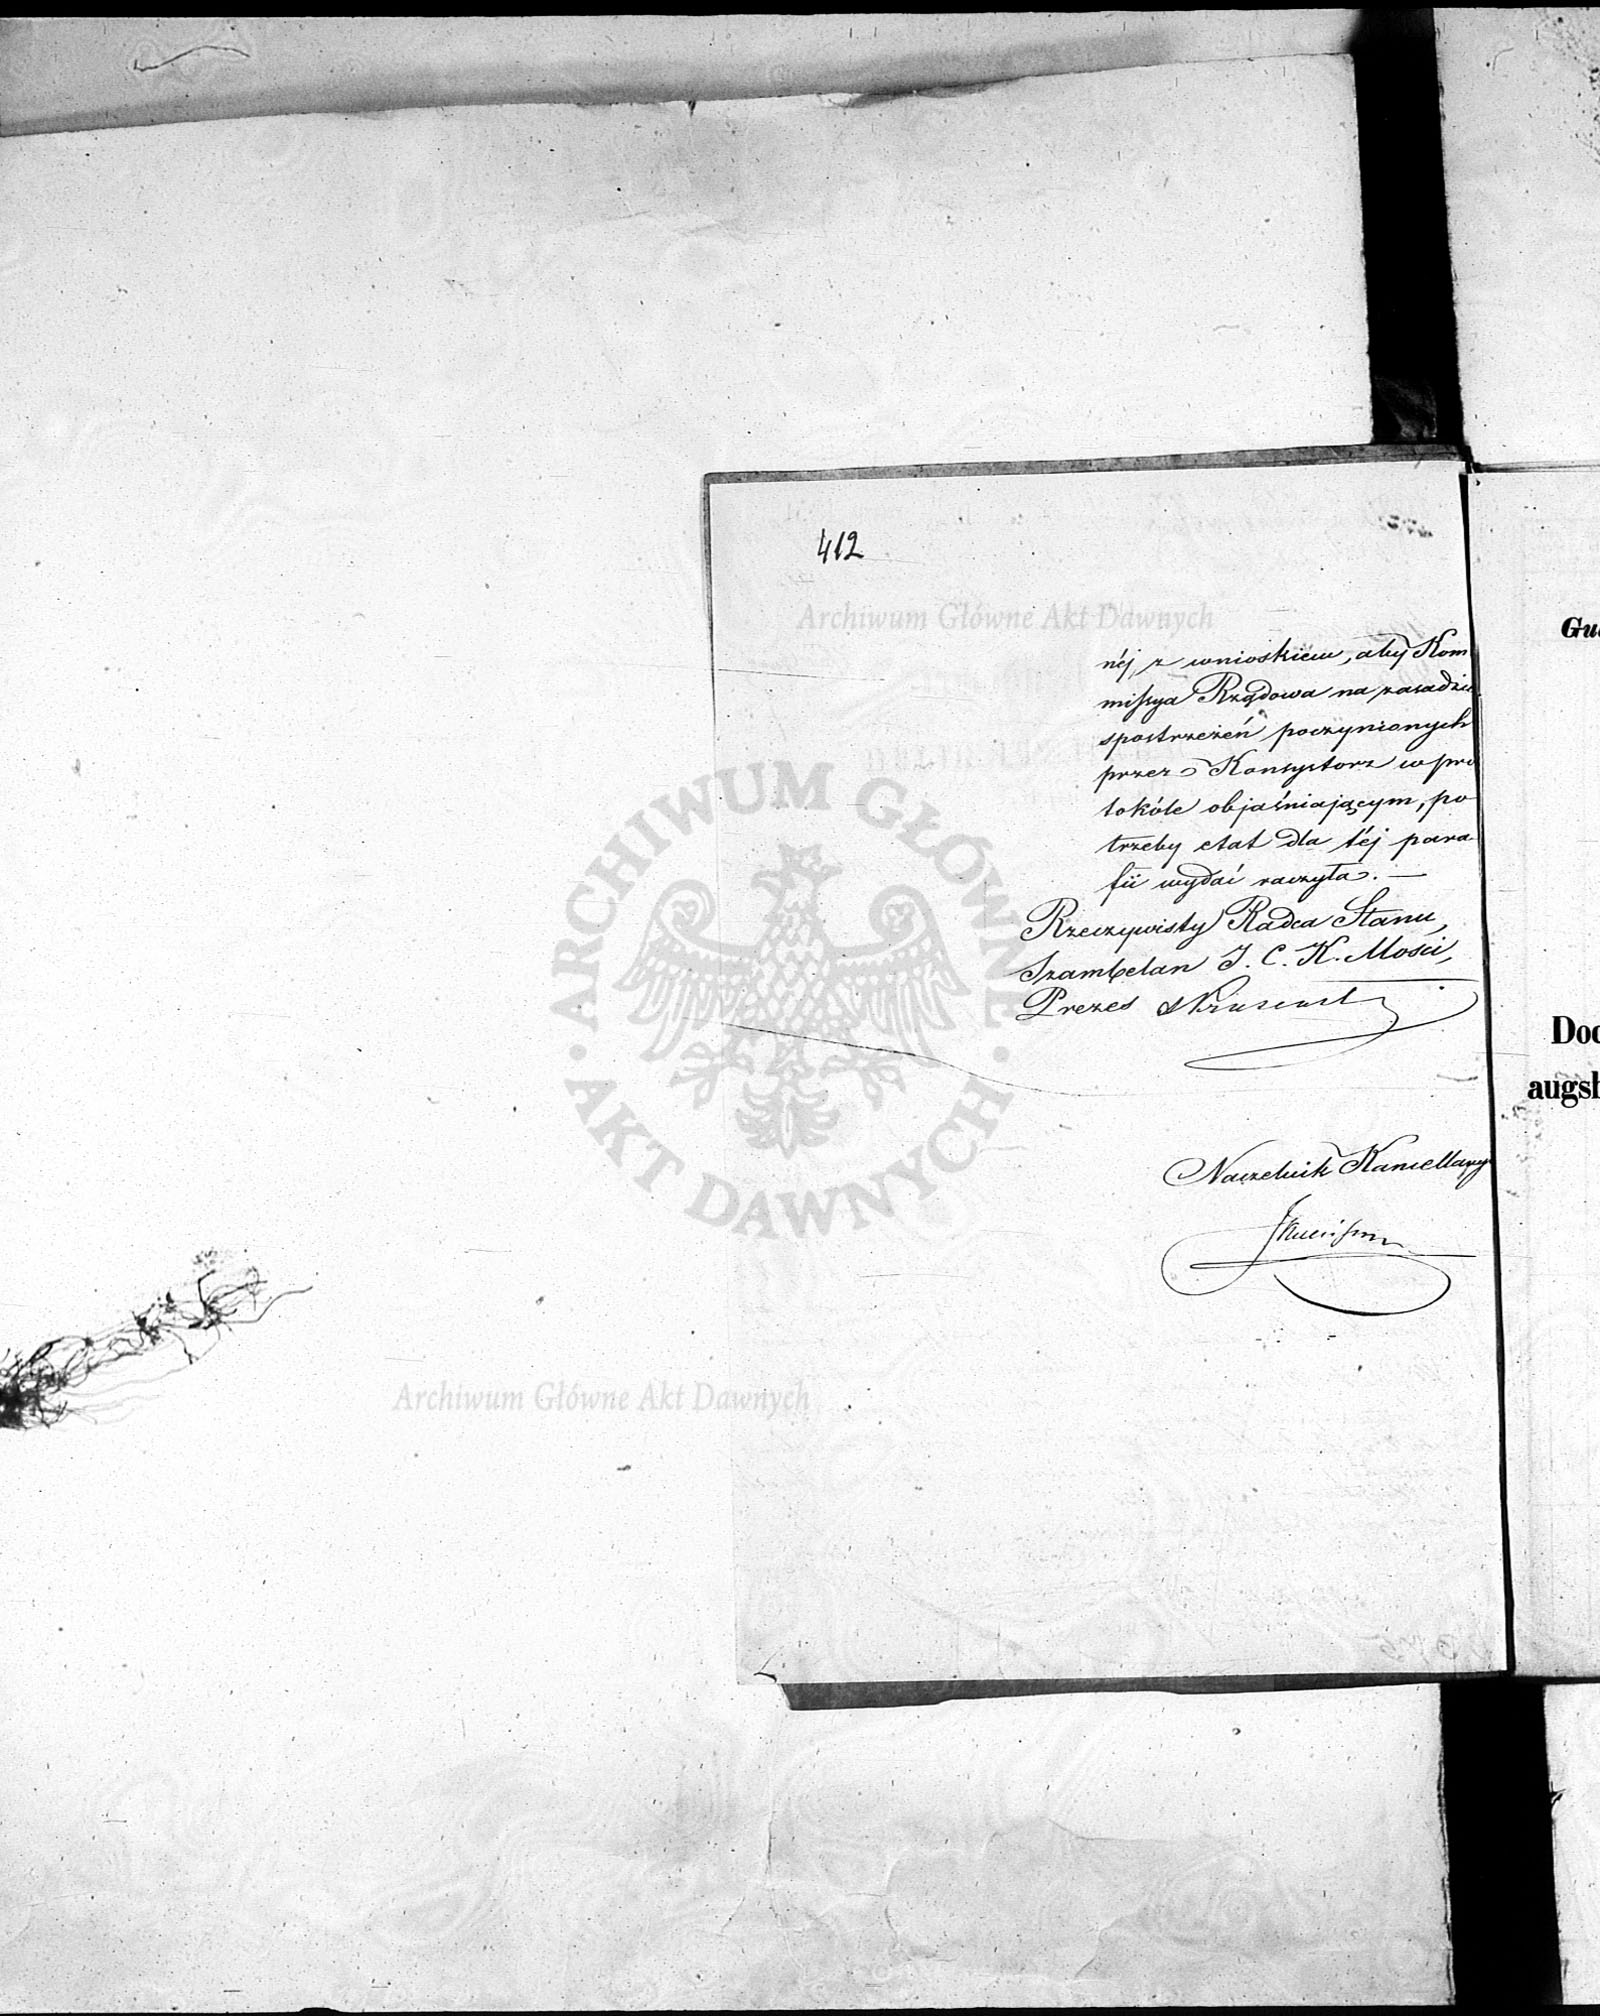 412
Archiwum Główne Akt Dawnych
néj, z wnioskiem, aby Kom
missya Rządowa na zasadzie
spostrzeżeń poczynionych
przez Konsystorz w pro
tokóle objaśniającym, po
trzeby etat dla téj para
fii wydać raczyła. —
Rzeczywisty Radca Stanu,
Szambelan J. C. K. Mości,
Prezes
ARCHIWUM GŁÓWNE
AKT DAWNYCH
Naczelnik Kancellaryi
Archiwum Główne Akt Dawnych
Gu
Doc
augsb